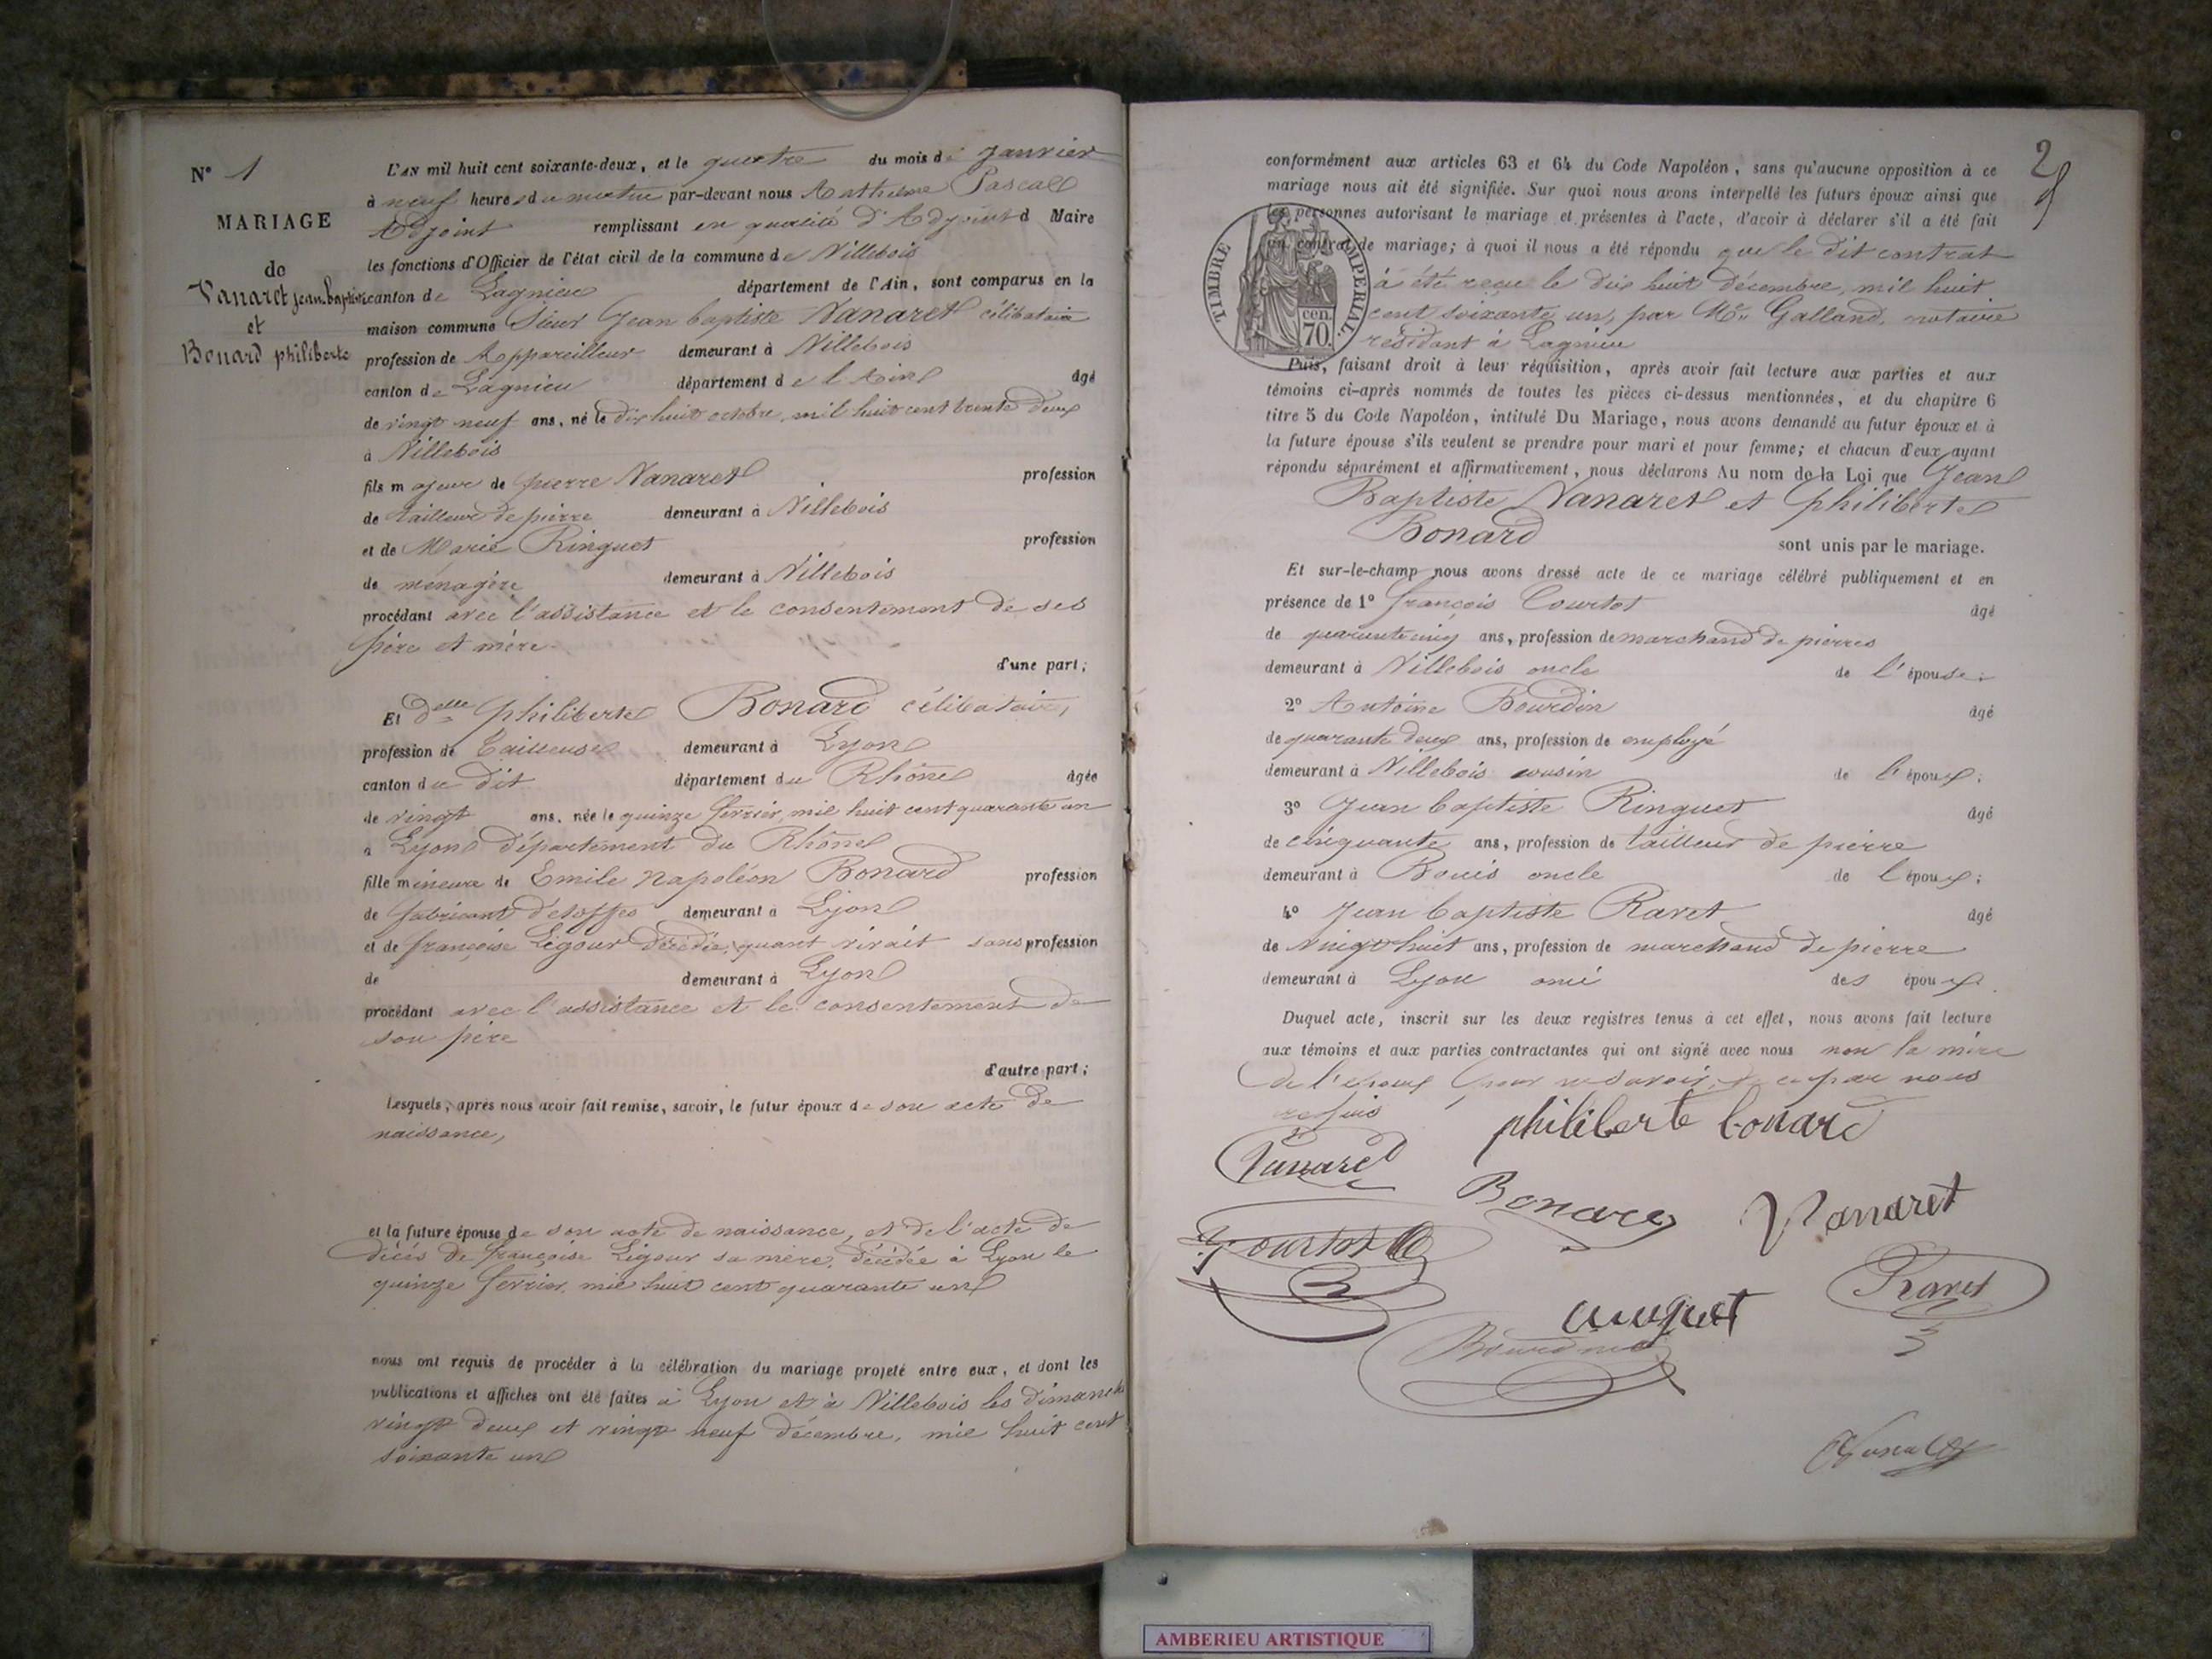 N° 1
MARIAGE
de
Vanaret jean baptiste
et
Bonard philiberte
L'AN mil huit cent soixante-deux, et le quatre du mois de Janvier
à neuf heures du matin par-devant nous Anthelme Pascal
Adjoint remplissant en qualité d'Adjoint d Maire
les fonctions d'Officier de l'état civil de la commune de Villebois
canton de Lagnieu département de l'Ain, sont comparus en la
maison commune Sieur Jean baptiste Vanaret célibataire
profession de Appareilleur demeurant à Villebois
canton de Lagnieu département de l'Ain âgé
de vingt neuf ans, né le dix huit octobre, mil huit cent trente deux
à Villebois
fils majeur de pierre Vanaret profession
de tailleur de pierre demeurant à Villebois
et de Marie Ringuet profession
de ménagère demeurant à Villebois
procédant avec l'assistance et le consentement de ses
père et mère
d'une part;
Et delle philiberte Bonard célibataire,
profession de Tailleuse demeurant à Lyon
canton du dit département du Rhône âgée
de vingt ans, née le quinze février, mil huit cent quarante un
à Lyon département du Rhône
fille mineure de Emile Napoléon Bonard profession
de fabricant d'étoffes demeurant à Lyon
et de françoise Ligour décédée, quant vivait sans profession
de demeurant à Lyon
procédant avec l'assistance et le consentement de
son père
d'autre part;
Lesquels, après nous avoir fait remise, savoir, le futur époux de son acte de
naissance,
et la future épouse de son acte de naissance, et de l'acte de
décès de françoise Ligour sa mère, décédée à Lyon le
quinze février, mil huit cent quarante un
nous ont requis de procéder à la célébration du mariage projeté entre eux, et dont les
publications et affiches ont été faites à Lyon et à Villebois les dimanches
vingt deux et vingt neuf décembre, mil huit cent
soixante un
2
conformément aux articles 63 et 64 du Code Napoléon, sans qu'aucune opposition à ce
mariage nous ait été signifiée. Sur quoi nous avons interpellé les futurs époux ainsi que
les personnes autorisant le mariage et présentes à l'acte, d'avoir à déclarer s'il a été fait
un contrat de mariage; à quoi il nous a été répondu que le dit contrat
à été reçu le dix huit décembre, mil huit
cent soixante un, par Me Galland, notaire
résidant à Lagnieu
TIMBRE IMPERIAL
cen.
70.
Puis, faisant droit à leur réquisition, après avoir fait lecture aux parties et aux
témoins ci-après nommés de toutes les pièces ci-dessus mentionnées, et du chapitre 6
titre 5 du Code Napoléon, intitulé Du Mariage, nous avons demandé au futur époux et à
la future épouse s'ils veulent se prendre pour mari et pour femme; et chacun d'eux ayant
répondu séparément et affirmativement, nous déclarons Au nom de la Loi que Jean
Baptiste Vanaret et philiberte
Bonard sont unis par le mariage.
Et sur-le-champ nous avons dressé acte de ce mariage célébré publiquement et en
présence de 1° françois Courtot âgé
de quarante cinq ans, profession de marchand de pierres
demeurant à Villebois oncle de l'épouse;
2° Antoine Bourdin âgé
de quarante deux ans, profession de employé
demeurant à Villebois cousin de l'époux;
3° Jean baptiste Ringuet âgé
de cinquante ans, profession de tailleur de pierre
demeurant à Bouis oncle de l'époux;
4° Jean baptiste Ravet âgé
de vingt huit ans, profession de marchand de pierre
demeurant à Lyon ami des époux.
Duquel acte, inscrit sur les deux registres tenus à cet effet, nous avons fait lecture
aux témoins et aux parties contractantes qui ont signé avec nous non la mère
de l'époux pour ne savoir, de ce par nous
requis
philiberte bonard
Vanaret
Bonard
Vanaret
Courtot
Ravet
Bourdin
AMBERIEU ARTISTIQUE